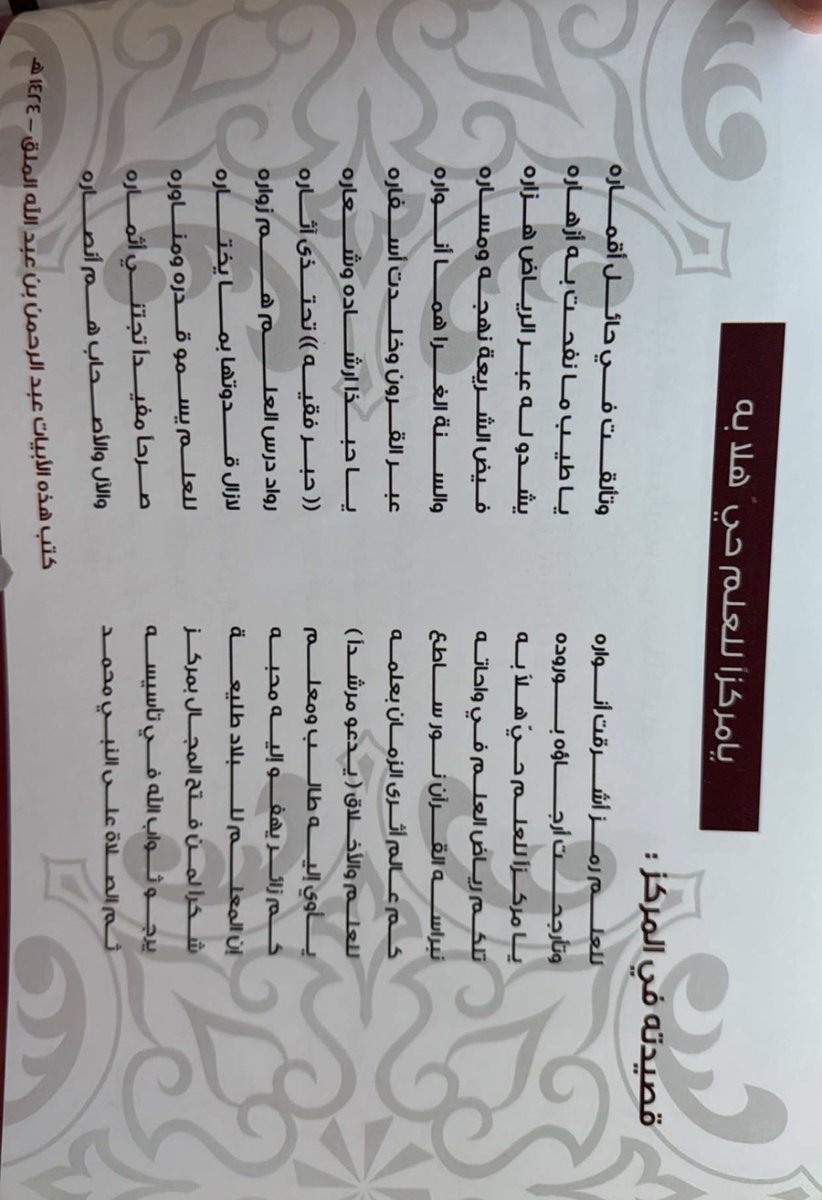 يامركزاً للعلم حيّ هلا به
قصيدته في المركز :
للعلم رمز أشرقت أنواره وتألقت في حائل أقماره
وتأرجحت أرجاؤه بوروده يا طيب ما نفحت به أزهاره
يا مركزاً للعلم حيّ هلاً به يشدو له عبر الرياض هزاره
تلكم رياض العلم في واحاته فيض الشريعة نهجه ومساره
نبراسه القرآن نور ساطع والسنة الغرا هما أنواره
كم عالم أثرى الزمان بعلمه عبر القرون وخلدت أسفاره
للعلم والأخلاق ( يدعو مرشداً ) يا حبذا ارشاده وشعاره
يأوي إليه طالب ومعلم (( حبر فقيه )) تحتذى آثاره
كم زائر يهفو إليه محبه رواد درس العلم هم زواره
إن المعلم للبلاد طليعة لازال قدوتها بما يختاره
شكرا لمن فتح المجال بمركز للعلم يسمو قدره ومناوره
يرجو ثواب الله في تأسيسه صرحا مفيداً تجتني اثماره
ثم الصلاة على النبي محمد والآل والأصحاب هم أنصاره
كتب هذه الأبيات عبد الرحمن بن عبد الله الملق – ١٤٢٤هـ